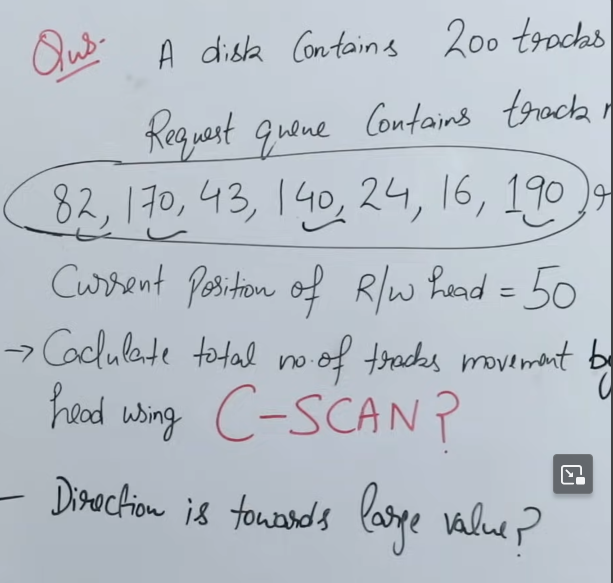 Qus. A disk Contains 200 tracks
Request queue Contains track
82, 170, 43, 140, 24, 16, 190
Current Position of R/W head = 50
→ Caclulate total no. of tracks movement by
head using C-SCAN?
- Direction is towards large value?